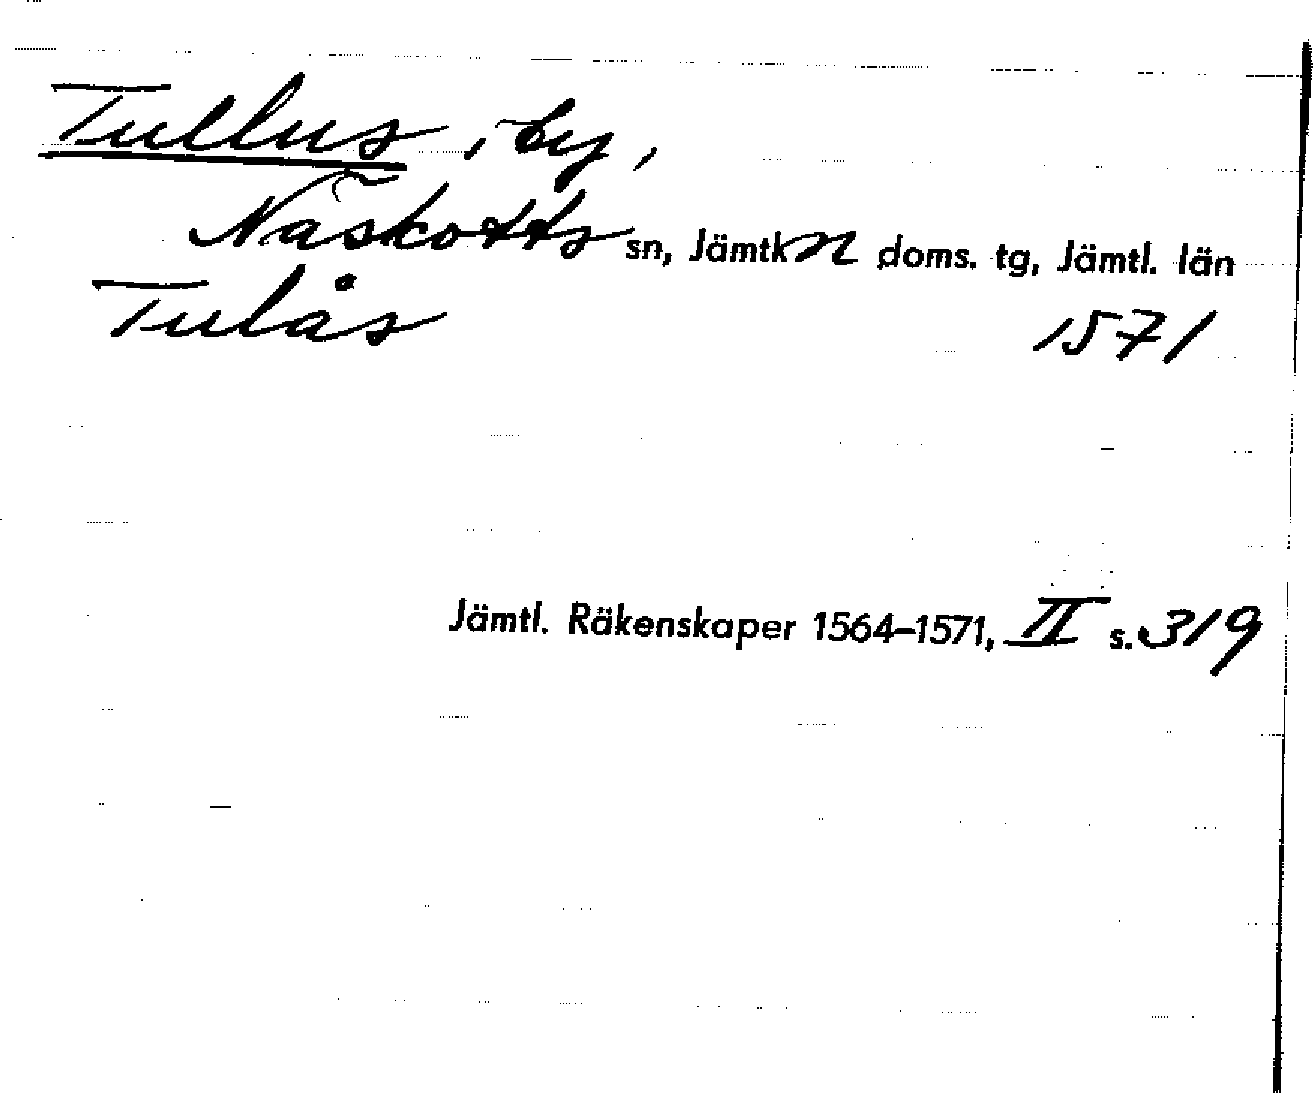 Tullus, by,
Näskotts sn, Jämtl. n doms. tg, Jämtl. län
Tulås 1571
Jämtl. Räkenskaper 1564–1571, II s. 319